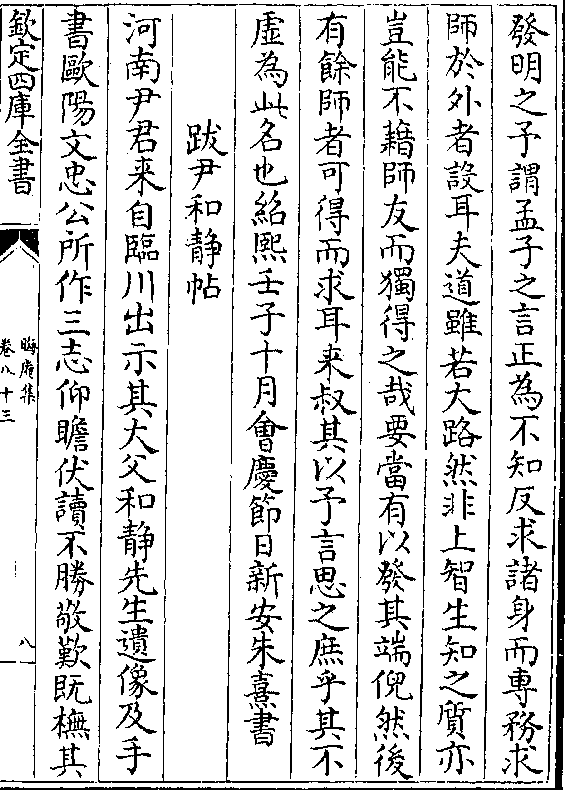 發明之予謂孟子之言正為不知反求諸身而專務求
師於外者設耳夫道雖若大路然非上智生知之質亦
豈能不藉師友而獨得之哉要當有以發其端倪然後
有餘師者可得而求耳来叔其以予言思之庶乎其不
虛為此名也紹熙壬子十月會慶節日新安朱熹書
跋尹和静帖
河南尹君来自臨川出示其大父和静先生遺像及手
書歐陽文忠公所作三志仰瞻伏讀不勝敬歎既橅其
欽定四庫全書
晦庵集
卷八十三
八